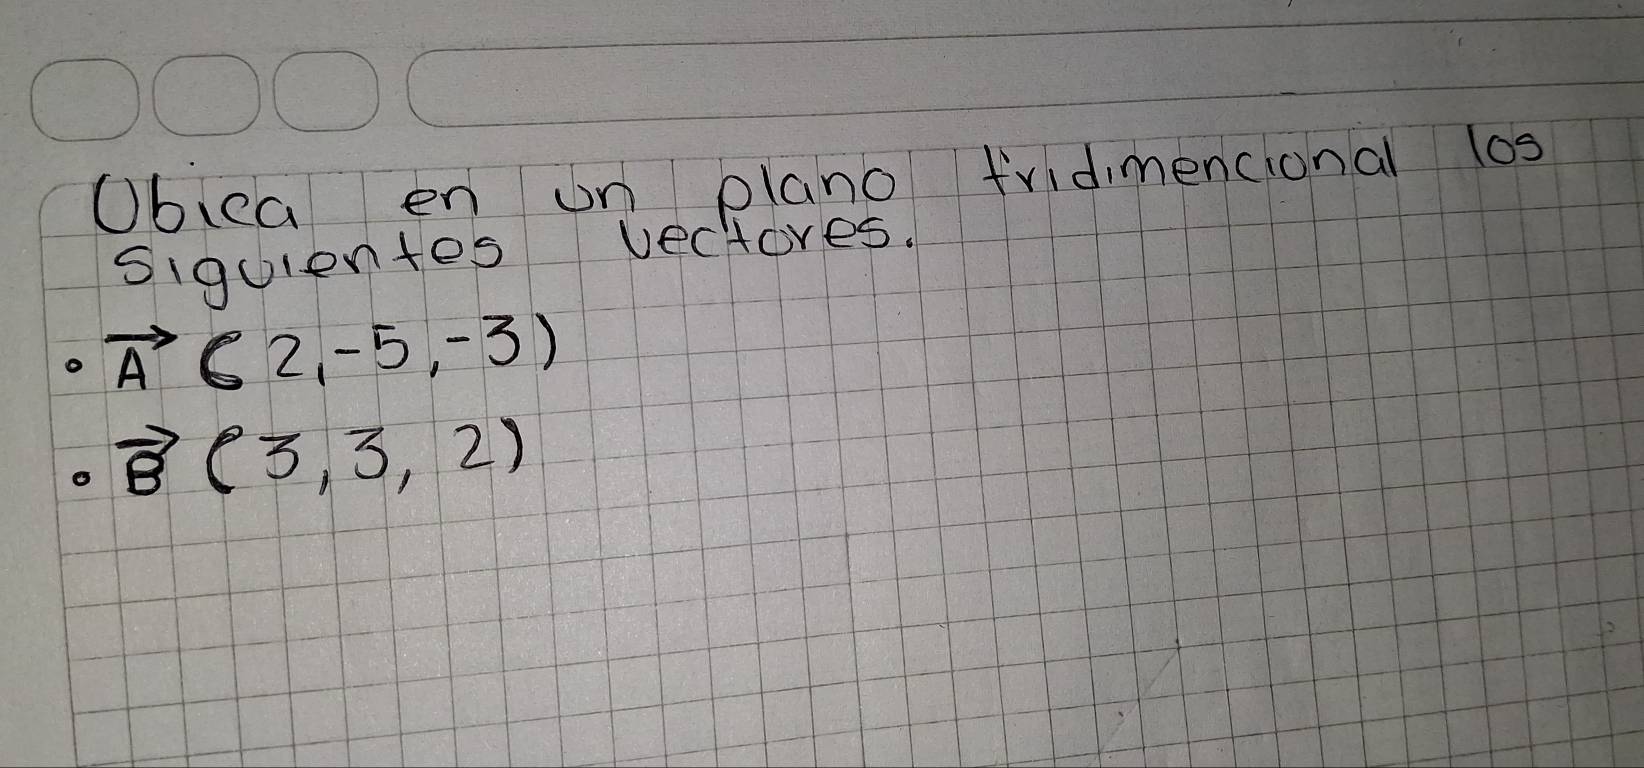 Ubica en un plano tridimencional los
siguientes vectores.
• A⃗ (2,-5,-3)
• B⃗ (3,3,2)